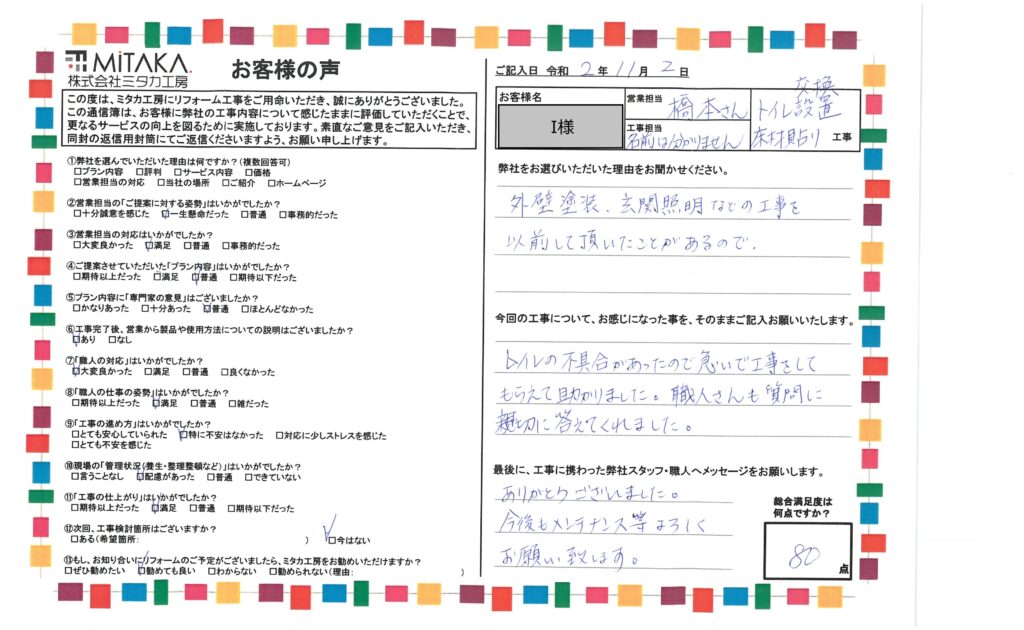 MiTAKA.
株式会社ミタカ工房
お客様の声
この度は、ミタカ工房にリフォーム工事をご用命いただき、誠にありがとうございました。
この通信簿は、お客様に弊社の工事内容について感じたままに評価していただくことで、
更なるサービスの向上を図るために実施しております。素直なご意見をご記入いただき、
同封の返信用封筒にてご返信くださいますよう、お願い申し上げます。
①弊社を選んでいただいた理由は何ですか？(複数回答可)
□プラン内容 □評判 □サービス内容 □価格
□営業担当の対応 □当社の場所 □ご紹介 □ホームページ
②営業担当の「ご提案に対する姿勢」はいかがでしたか？
□十分誠意を感じた □一生懸命だった □普通 □事務的だった
③営業担当の対応はいかがでしたか？
□大変良かった □満足 □普通 □事務的だった
④ご提案させていただいた「プラン内容」はいかがでしたか？
□期待以上だった □満足 □普通 □期待以下だった
⑤プラン内容に「専門家の意見」はございましたか？
□かなりあった □十分あった □普通 □ほとんどなかった
⑥工事完了後、営業から製品や使用方法についての説明はございましたか？
□あり □なし
⑦「職人の対応」はいかがでしたか？
□大変良かった □満足 □普通 □良くなかった
⑧「職人の仕事の姿勢」はいかがでしたか？
□期待以上だった □満足 □普通 □雑だった
⑨「工事の進め方」はいかがでしたか？
□とても安心していられた □特に不安はなかった □対応に少しストレスを感じた
□とても不安を感じた
⑩現場の「管理状況(養生・整理整頓など)」はいかがでしたか？
□言うことなし □配慮があった □普通 □できていない
⑪「工事の仕上がり」はいかがでしたか？
□期待以上だった □満足 □普通 □期待以下だった
⑫次回、工事検討箇所はございますか？
□ある(希望箇所: ) □今はない
⑬もし、お知り合いにリフォームのご予定がございましたら、ミタカ工房をお勧めいただけますか？
□ぜひ勧めたい □勧めても良い □わからない □勧められない(理由: )
ご記入日 令和 2 年 11 月 2 日
お客様名
I様
営業担当 橋本さん
工事担当
名前は分かりません
交換
トイレ設置
床材貼り 工事
弊社をお選びいただいた理由をお聞かせください。
外壁塗装、玄関照明などの工事を
以前して頂いたことがあるので。
今回の工事について、お感じになった事を、そのままご記入お願いいたします。
トイレの不具合があったので急いで工事をして
もらえて助かりました。職人さんも質問に
親切に答えてくれました。
最後に、工事に携わった弊社スタッフ・職人へメッセージをお願いします。
ありがとうございました。
今後もメンテナンス等よろしく
お願い致します。
総合満足度は
何点ですか？
80 点